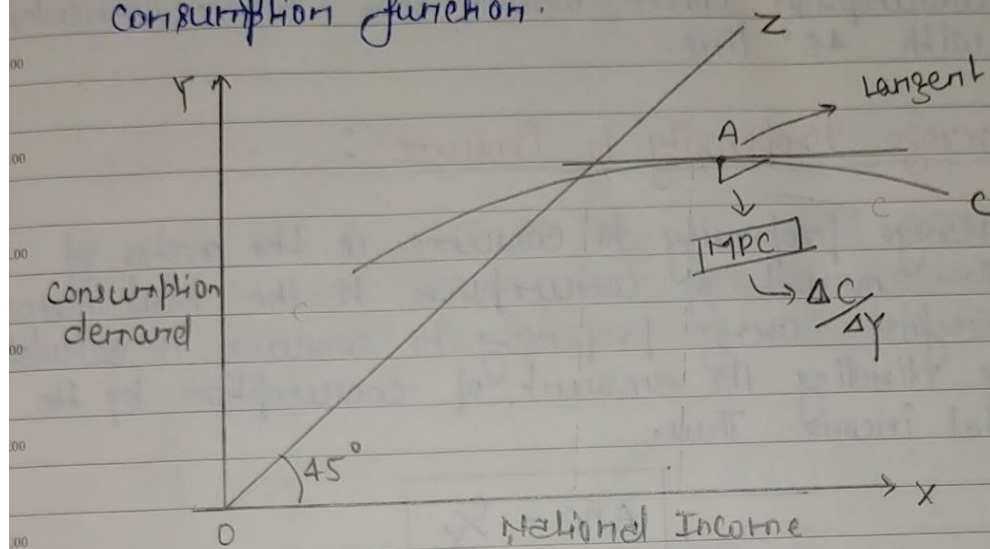 consumption function.
Z
Y
tangent
A
C
MPC
ΔC/ΔY
consumption
demand
45°
X
O
National Income